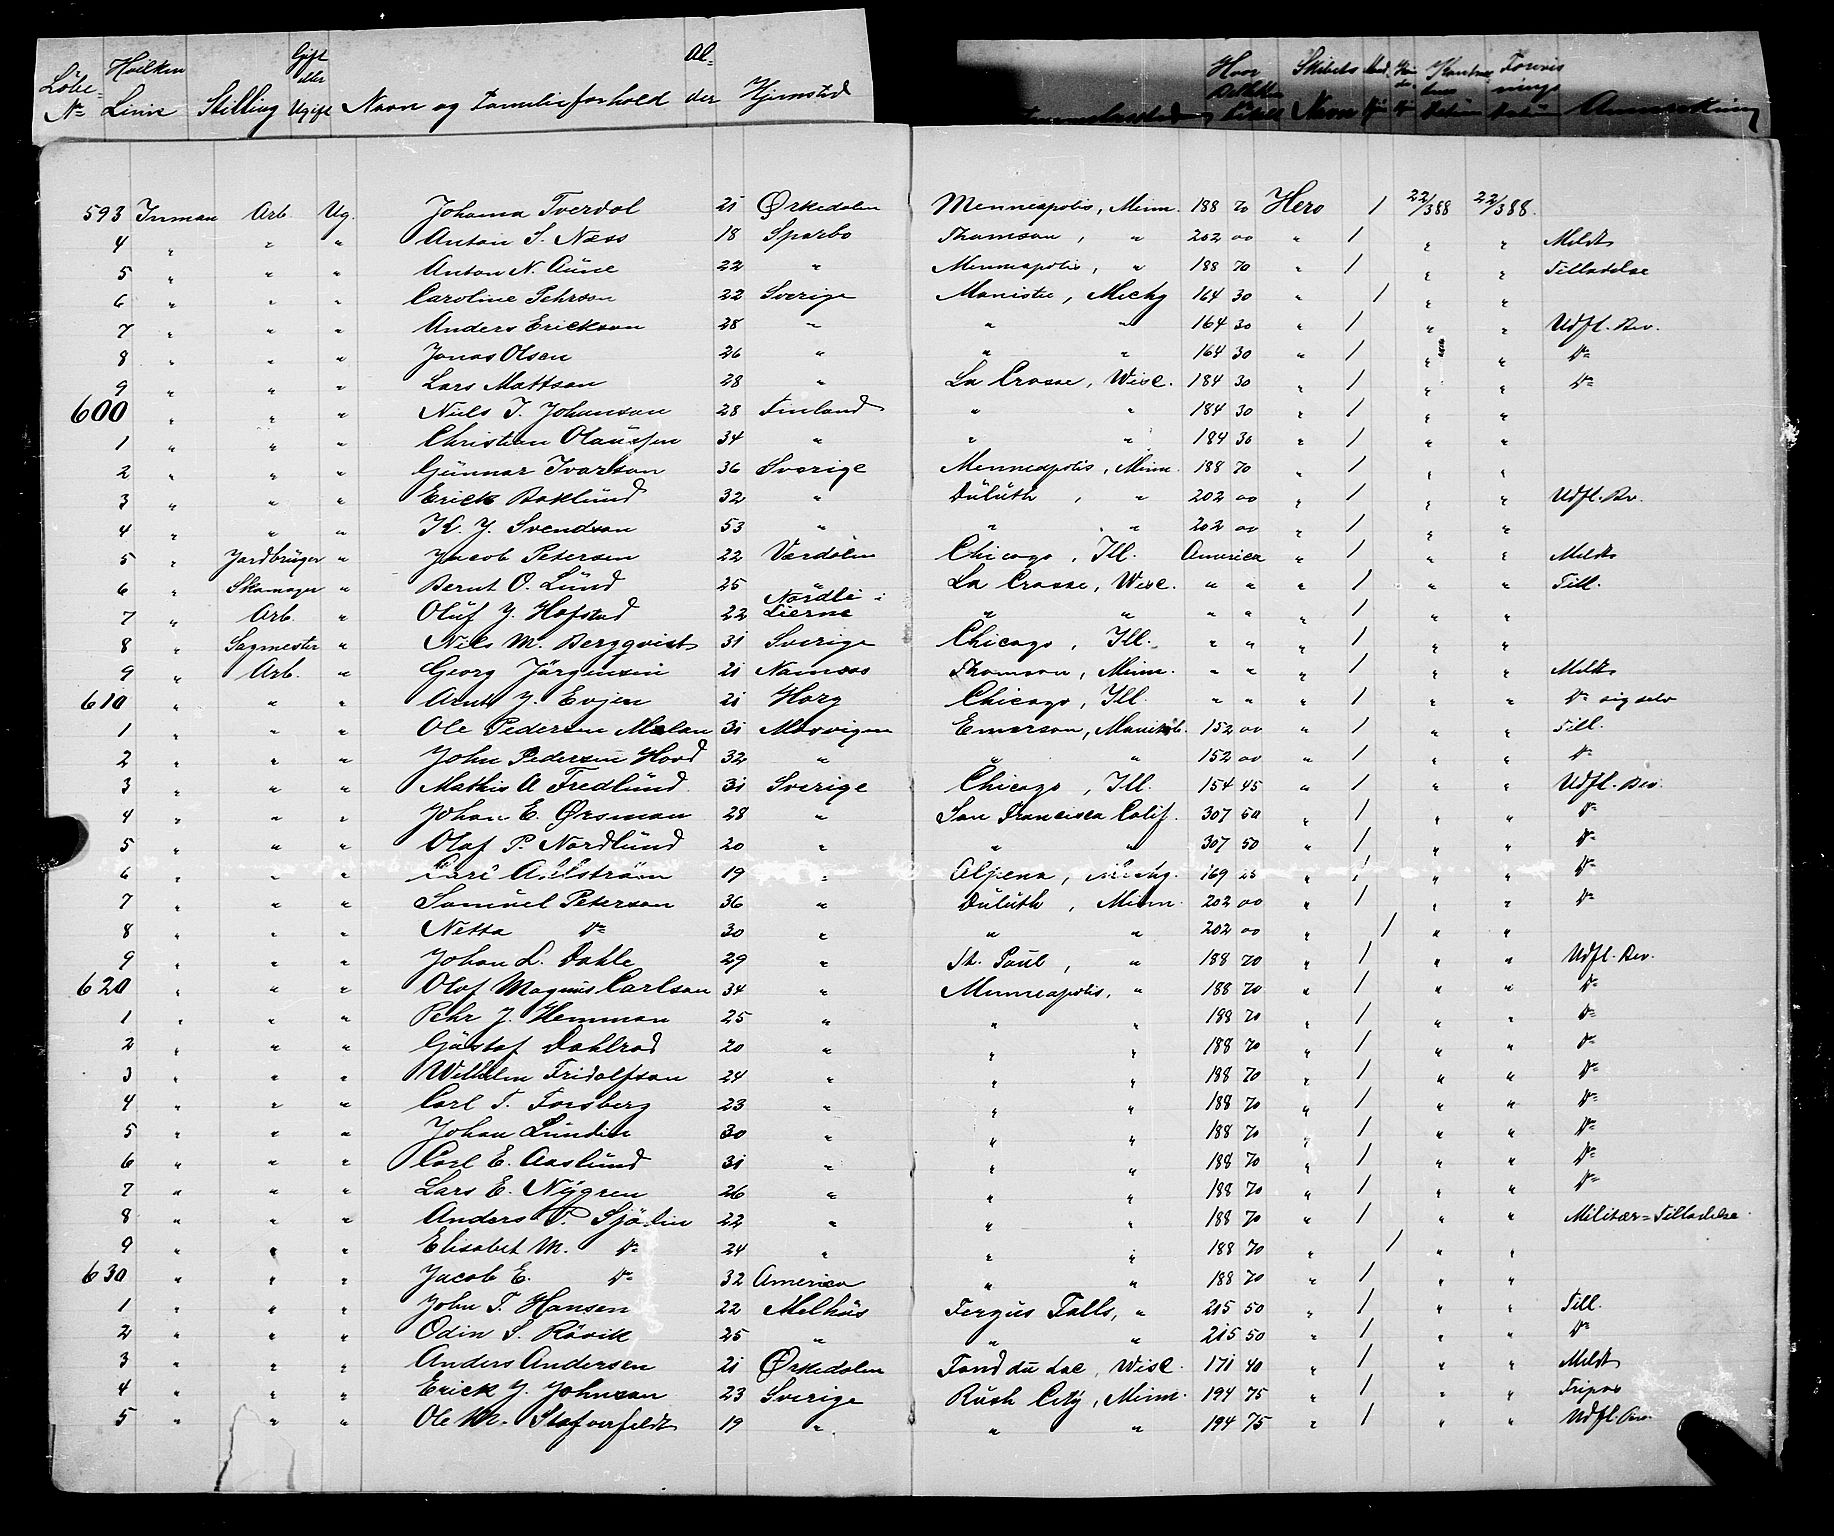 Löbe= Nº Hvilken Linie Stilling Gift eller Ugift Navn og Familieforhold Al- der Hjemsted Skibets Navn Anmerkning
593 Inman Arb. Ug. Johanna Tverdal 21 Ørkedalen Menneapolis, Minn. 188 70 Hero 1 22/3 88 22/3 88.
4 " " " Anton S. Næss 18 Sparbo Thomson, " 202 00 " 1 " " Meldt
5 " " " Anton N. Aune 22 " Minneapolis, " 188 70 " 1 " " Tilladelse
6 " " " Caroline Pehrson 22 Sverige Manistee, Michg 164 30 " 1 " "
7 " " " Anders Erickson 28 " " " 164 30 " 1 " " Udfl. Bev.
8 " " " Jonas Olsen 26 " " " 164 30 " 1 " " Dº
9 " " " Lars Mattson 28 " La Crosse, Wisc. 184 30 " 1 " " Dº
600 " " " Niels J. Johanson 28 Finland " " 184 30 " 1 " "
1 " " " Christian Olaussen 34 " " " 184 30 " 1 " "
2 " " " Gunnar Ivarson 36 Sverige Menneapolis, Minn. 188 70 " 1 " "
3 " " " Erick Baklund 32 " Duluth, " 202 00 " 1 " " Udfl. Bev.
4 " " " K. J. Svendson 53 " " " 202 00 " 1 " "
5 " Jordbruger " Jacob Petersen 22 Værdalen Chicago, Ill. America " 1 " " Meldt
6 " Skomager " Bernt O. Lund 25 Nordli i La Crosse, Wisc. " " " 1 " " Till.
7 " Arb. " Oluf J. Hofstad 22 Lierne " " " " " 1 " "
8 " Sagmester " Nils M. Bergqvist 31 Sverige Chicago, Ill. " " " 1 " "
9 " Arb. " Georg Jörgensen 21 Namsos Thomson, Minn. " " " 1 " " Meldt
610 " " " Arnt J. Evjen 21 Horg Chicago, Ill. " " " 1 " " Dº sig selv
1 " " " Ole Pedersen Melan 31 Mosvigen Emerson, Manitob. 152 00 " 1 " " Till.
2 " " " John Pedersen Hovd 32 " " " 152 00 " 1 " " Dº
3 " " " Mathis A Fredlund 31 Sverige Chicago, Ill. 154 45 " 1 " " Udfl. Bev.
4 " " " Johan E. Ørsman 28 " San Francisca Calif. 307 50 " 1 " " Dº
5 " " " Olof P. Nordlund 20 " " " 307 50 " 1 " " Dº
6 " " " Carl Ahlström 19 " Alpena, Michg. 169 " 1 " " Dº
7 " " " Samuel Peterson 36 " Duluth, Minn. 202 00 " 1 " " Dº
8 " " " Netta Dº 30 " " " 202 00 " 1 " "
9 " " " Johan L. Dahle 29 " St. Paul, " 188 70 " 1 " " Udfl. Bev.
620 " " " Olof Magnus Carlson 34 " Minneapolis, " 188 70 " 1 " " Dº
1 " " " Pehr J. Hemman 25 " " " 188 70 " 1 " " Dº
2 " " " Gustaf Dahlrod 20 " " " 188 70 " 1 " " Dº
3 " " " Wilhelm Fridolfson 24 " " " 188 70 " 1 " " Dº
4 " " " Carl T. Forsberg 23 " " " 188 70 " 1 " " Dº
5 " " " Johan Lundin 30 " " " 188 70 " 1 " " Dº
6 " " " Carl E. Aaslund 31 " " " 188 70 " 1 " " Dº
7 " " " Lars E. Nygren 26 " " " 188 70 " 1 " " Dº
8 " " " Anders P. Sjödin 22 " " " 188 70 " 1 " " Militær=Tilladelse
9 " " " Elisabet M. Dº 24 " " " 188 70 " 1 " "
630 " " " Jacob E. Dº 32 America " " 188 70 " 1 " "
1 " " " John T. Hansen 22 Melhus Fergus Falls, " 215 50 " 1 " " Till.
2 " " " Odin S. Rövik 25 " " " 215 50 " 1 " " Dº
3 " " " Anders Andersen 21 Ørkedalen Fond du Lac, Wisc. 171 40 " 1 " " Meldt
4 " " " Erick J. Johnson 23 Sverige Rush City, Minn. 194 75 " 1 " " Fripas
5 " " " Ole M. Stafverfeldt 19 " " " 194 75 " 1 " " Udfl. Bev.